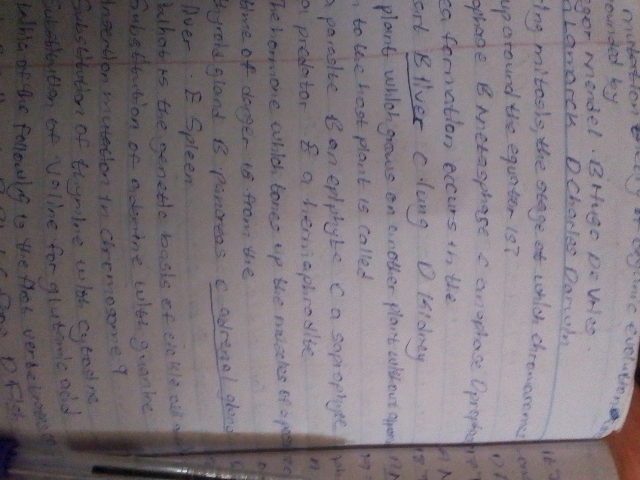 mutation theory of organic evolution
ounded by
egor mendel. B Hugo De Vries.
n Lamarck D Charles Darwin
ing mitosis, the stage at which chromosomes
up around the equator is?
ophase B Metaphase C anaphase D prophase
ea formation occurs in the
art B liver C lung D kidney
plant which grows on another plant without
to the host plant is called
a parasite B an epiphyte C a saprophyte
a predator E a hermaphrodite
The hormone which tone up the muscles of a person
time of danger is from the
thyroid gland B pancreas C adrenal gland
liver. E Spleen
Which is the genetic basis of sickle cell
Substitution of adenine with guanine
Insertion mutation in chromosome 9
Substitution of thymine with cytosine
Substitution of Valine for glutamic acid
Which of the following is the first vertebrate